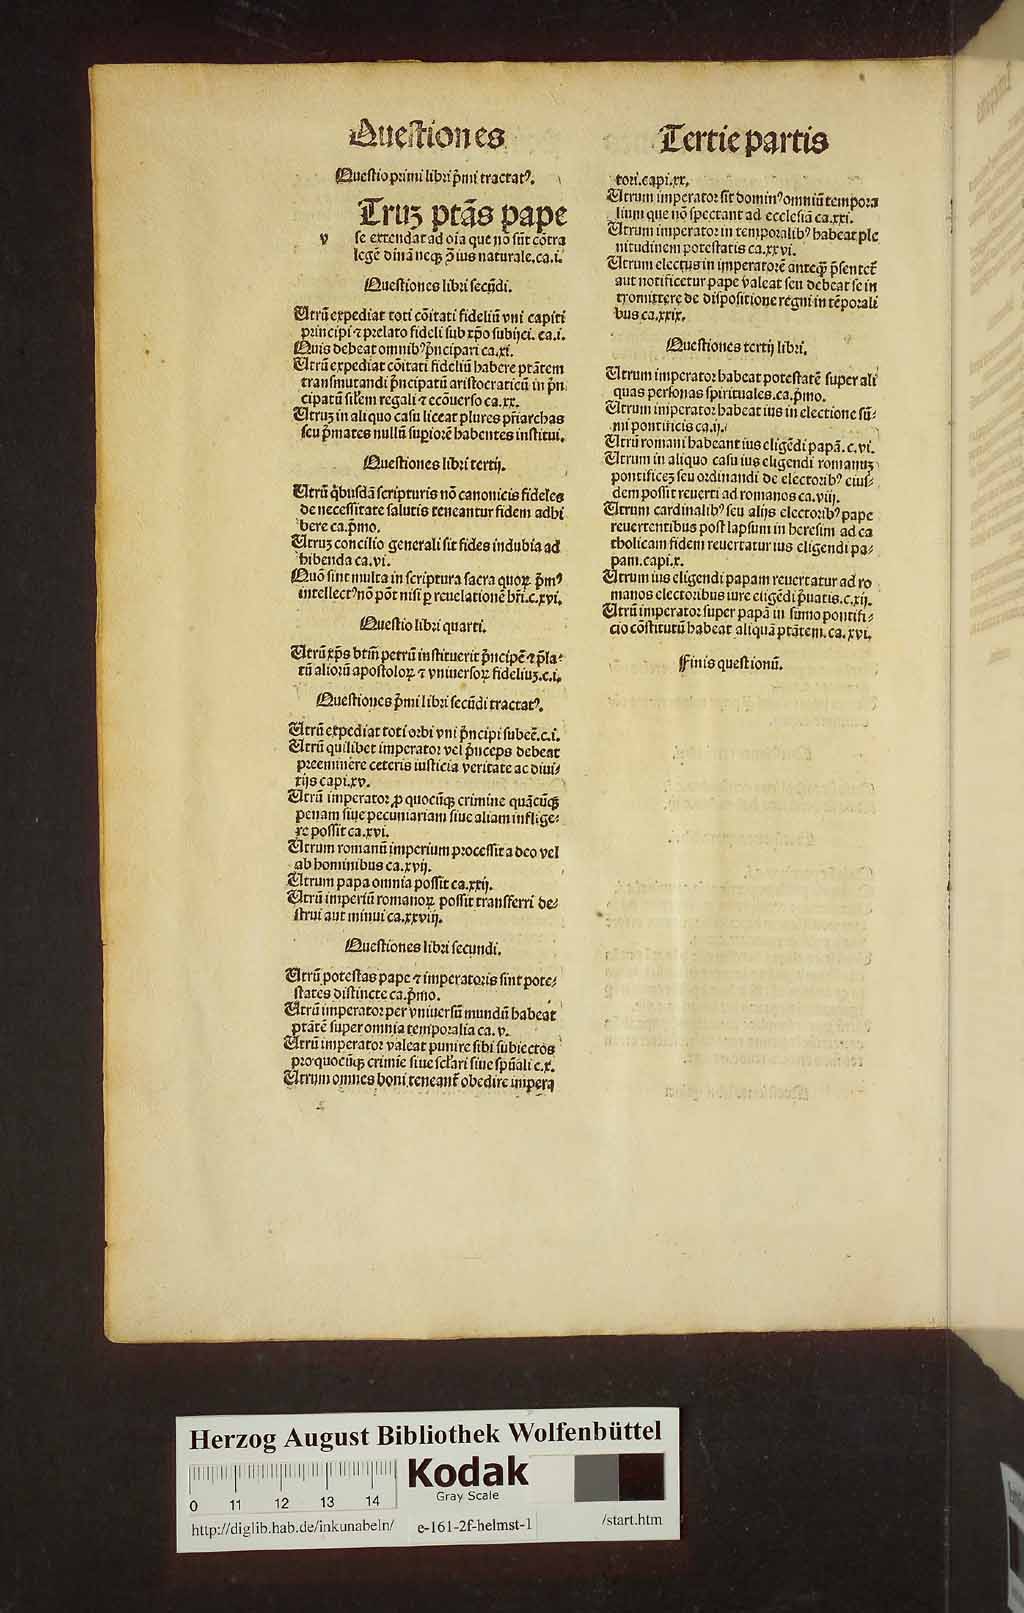 Questiones
Questio primi libri p̃mi tractatꝰ.
Truʒ ptãs pape
v se extendat ad oĩa que nõ sũt cõtra
legẽ diuinã neqꝫ ius naturale.ca.i.
Questiones libri secũdi.
Utrũ expediat toti cõitati fideliũ vni capiti
principi ⁊ prelato fideli sub xp̃o subijci. ca.i.
Quis debeat omnibꝰ p̃ncipari ca.xi.
Utrũ expediat cõitati fideliũ habere ptãtem
transmutandi p̃ncipatũ aristocraticũ in p̃n
cipatũ sil̃em regali ⁊ ecõuerso ca.xx.
Utruʒ in aliquo casu liceat plures pr̃iarchas
seu p̃mates nullũ supiorẽ habentes institui.
Questiones libri tertij.
Utrũ q̃busdã scripturis nõ canonicis fideles
de necessitate salutis teneantur fidem adhi
bere ca.p̃mo.
Utruʒ concilio generali sit fides indubia ad
hibenda ca.vi.
Quõ sint multa in scriptura sacra quoꝝ p̃mꝰ
intellectꝰ nõ põt nisi ꝑ reuelationẽ hr̃i.c.xvi.
Questio libri quarti.
Utrũ xp̃s btm̃ petrũ instituerit p̃ncipẽ ⁊ p̃la-
tũ alioruũ apostoloꝝ ⁊ vniuersoꝝ fideliuʒ.c.i.
Questiones p̃mi libri secũdi tractatꝰ.
Utrũ expediat toti orbi vni p̃ncipi subeẽ.c.i.
Utrũ quilibet imperator vel p̃nceps debeat
preeminere ceteris iusticia veritate ac diui-
tijs capi.xv.
Utrũ imperator ꝓ quocũqꝫ crimine quãcũqꝫ
penam siue pecuniariam siue aliam inflige-
re possit ca.xvi.
Utrum romanũ imperium processit a deo vel
ab hominibus ca.xvij.
Utrum papa omnia possit ca.xxij.
Utrũ imperiũ romanoꝝ possit transferri de-
strui aut minui ca.xxviij.
Questiones libri secundi.
Utrũ potestas pape ⁊ imperatoris sint pote-
states distincte ca.p̃mo.
Utrũ imperator per vniuersũ mundũ habeat
ptãtẽ super omnia temporalia ca. v.
Utrũ imperator valeat punire sibi subiectos
pro quocũqꝫ crimĩe siue scl̃ari siue spũali c.x.
Utrum omnes boni teneant̃ obedire impera
Tertie partis
tori.capi.xx.
Utrum imperator sit dominꝰ omniũ tempora
lium que nõ spectant ad ecclesiã ca.xxi.
Utrum imperator in temporalibꝰ habeat ple
nitudinem potestatis ca.xxvi.
Utrum electus in imperatorẽ anteqꝫ p̃sentet̃
aut notificetur pape valeat seu debeat se in
tromittere de dispositione regni in tẽporali
bus ca.xxix.
Questiones tertij libri.
Utrum imperator habeat potestatẽ super ali
quas personas spirituales.ca.p̃mo.
Utrum imperator habeat ius in electione sũ-
mi pontificis ca.ij.
Utrũ romani habeant ius eligẽdi papã. c.vi.
Utrum in aliquo casu ius eligendi romanuʒ
pontificeʒ seu ordinandi de electoribꝰ eius-
dem possit reuerti ad romanos ca.viij.
Utrum cardinalibꝰ seu alijs electoribꝰ pape
reuertentibus post lapsum in heresim ad ca
tholicam fidem reuertatur ius eligendi pa-
pam.capi.x.
Utrum ius eligendi papam reuertatur ad ro
manos electoribus iure eligẽdi p̃uatis.c.xij.
Utrũ imperator super papã in sũmo pontifi-
cio cõstitutũ habeat aliquã ptãtem. ca.xvi.
Finis questionũ.
Herzog August Bibliothek Wolfenbüttel
0 11 12 13 14
Kodak
Gray Scale
http://diglib.hab.de/inkunabeln/ e-161-2f-helmst-1 /start.htm